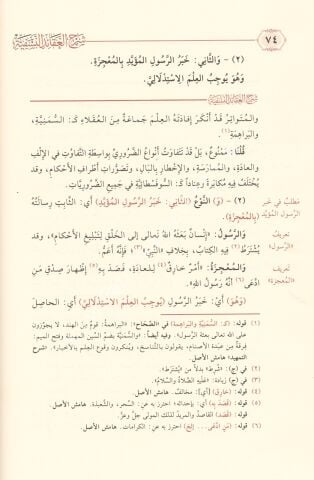 ٧٤
شرح العقائد النسفية
(٢) - وَالثَّانِي: خَبَرُ الرَّسُولِ المُؤَيَّدِ بِالمُعْجِزَةِ.
وَهُوَ يُوجِبُ العِلْمَ الِاسْتِدْلَالِيَّ.
شرح العقائد النسفية
وَالمُتَوَاتِرُ قَدْ أَنْكَرَ إِفَادَتَهُ العِلْمَ جَمَاعَةٌ مِنَ العُقَلَاءِ كَـ: السُّمَنِيَّةِ، وَالبَرَاهِمَةِ(١).
قُلْنَا: مَمْنُوعٌ، بَلْ قَدْ تَتَفَاوَتُ أَنْوَاعُ الضَّرُورِيِّ بِوَاسِطَةِ التَّفَاوُتِ فِي الإِلْفِ
وَالعَادَةِ، وَالمُمَارَسَةِ، وَالإِخْطَارِ بِالبَالِ، وَتَصَوُّرَاتِ أَطْرَافِ الأَحْكَامِ، وَقَدْ
يُخْتَلَفُ فِيهِ مُكَابَرَةً وَعِنَادًا كَـ: السُّوفِسْطَائِيَّةِ فِي جَمِيعِ الضَّرُورِيَّاتِ.
مطلب في خبر الرسول المؤيد
(٢) - (وَ) النَّوْعُ (الثَّانِي: خَبَرُ الرَّسُولِ المُؤَيَّدِ) أَيِ: الثَّابِتِ رِسَالَتُهُ
(بِالمُعْجِزَةِ).
تعريف «الرسول»
وَالرَّسُولُ: «إِنْسَانٌ بَعَثَهُ اللهُ تَعَالَى إِلَى الخَلْقِ لِتَبْلِيغِ الأَحْكَامِ»، وَقَدْ
يُشْتَرَطُ(٢) فِيهِ الكِتَابُ، بِخِلَافِ «النَّبِيِّ»(٣)، فَإِنَّهُ أَعَمُّ.
تعريف «المعجزة»
وَالمُعْجِزَةُ: «أَمْرٌ خَارِقٌ(٤) لِلعَادَةِ، قُصِدَ بِهِ(٥) إِظْهَارُ صِدْقِ مَنِ
ادَّعَى(٦) أَنَّهُ رَسُولُ اللهِ».
(وَهُوَ) أَيْ: خَبَرُ الرَّسُولِ (يُوجِبُ العِلْمَ الِاسْتِدْلَالِيَّ) أَيِ: الحَاصِلَ
(١) قوله: (كـ: السُّمَنِيَّةِ وَالبَرَاهِمَةِ) في الصِّحَاح: «البراهمة: قومٌ من الهند، لا يجوّزون
على الله تعالى بعثة الرسول». وفيه أيضًا: «والسُّمَنِيَّة بضم السّين المهملة وفتح الميم:
فرقةٌ من عبدة الأصنام، يقولون بالتّناسخ، وينكرون وقوع العلم بالأخبار». «شرح
التمهيد» هامش الأصل.
(٢) في (ج): «شُرِطَ» بدلًا من «يُشْتَرَطُ».
(٣) في (ج) زيادة: «عَلَيْهِ الصَّلَاةُ وَالسَّلَامُ».
(٤) قوله: (خَارِقٌ) [أي]: مخالف. هامش الأصل.
(٥) قوله: (قُصِدَ بِهِ) أي: بإحداثه؛ احترز به عن: السِّحر، والشَّعبذة. هامش الأصل.
قوله: (قُصِدَ) القاصدُ والمريدُ لذلك المولى جلّ وعزّ.
(٦) قوله: (مَنِ ادَّعَى ... إلخ) احترز به عن: الكرامات. هامش الأصل.